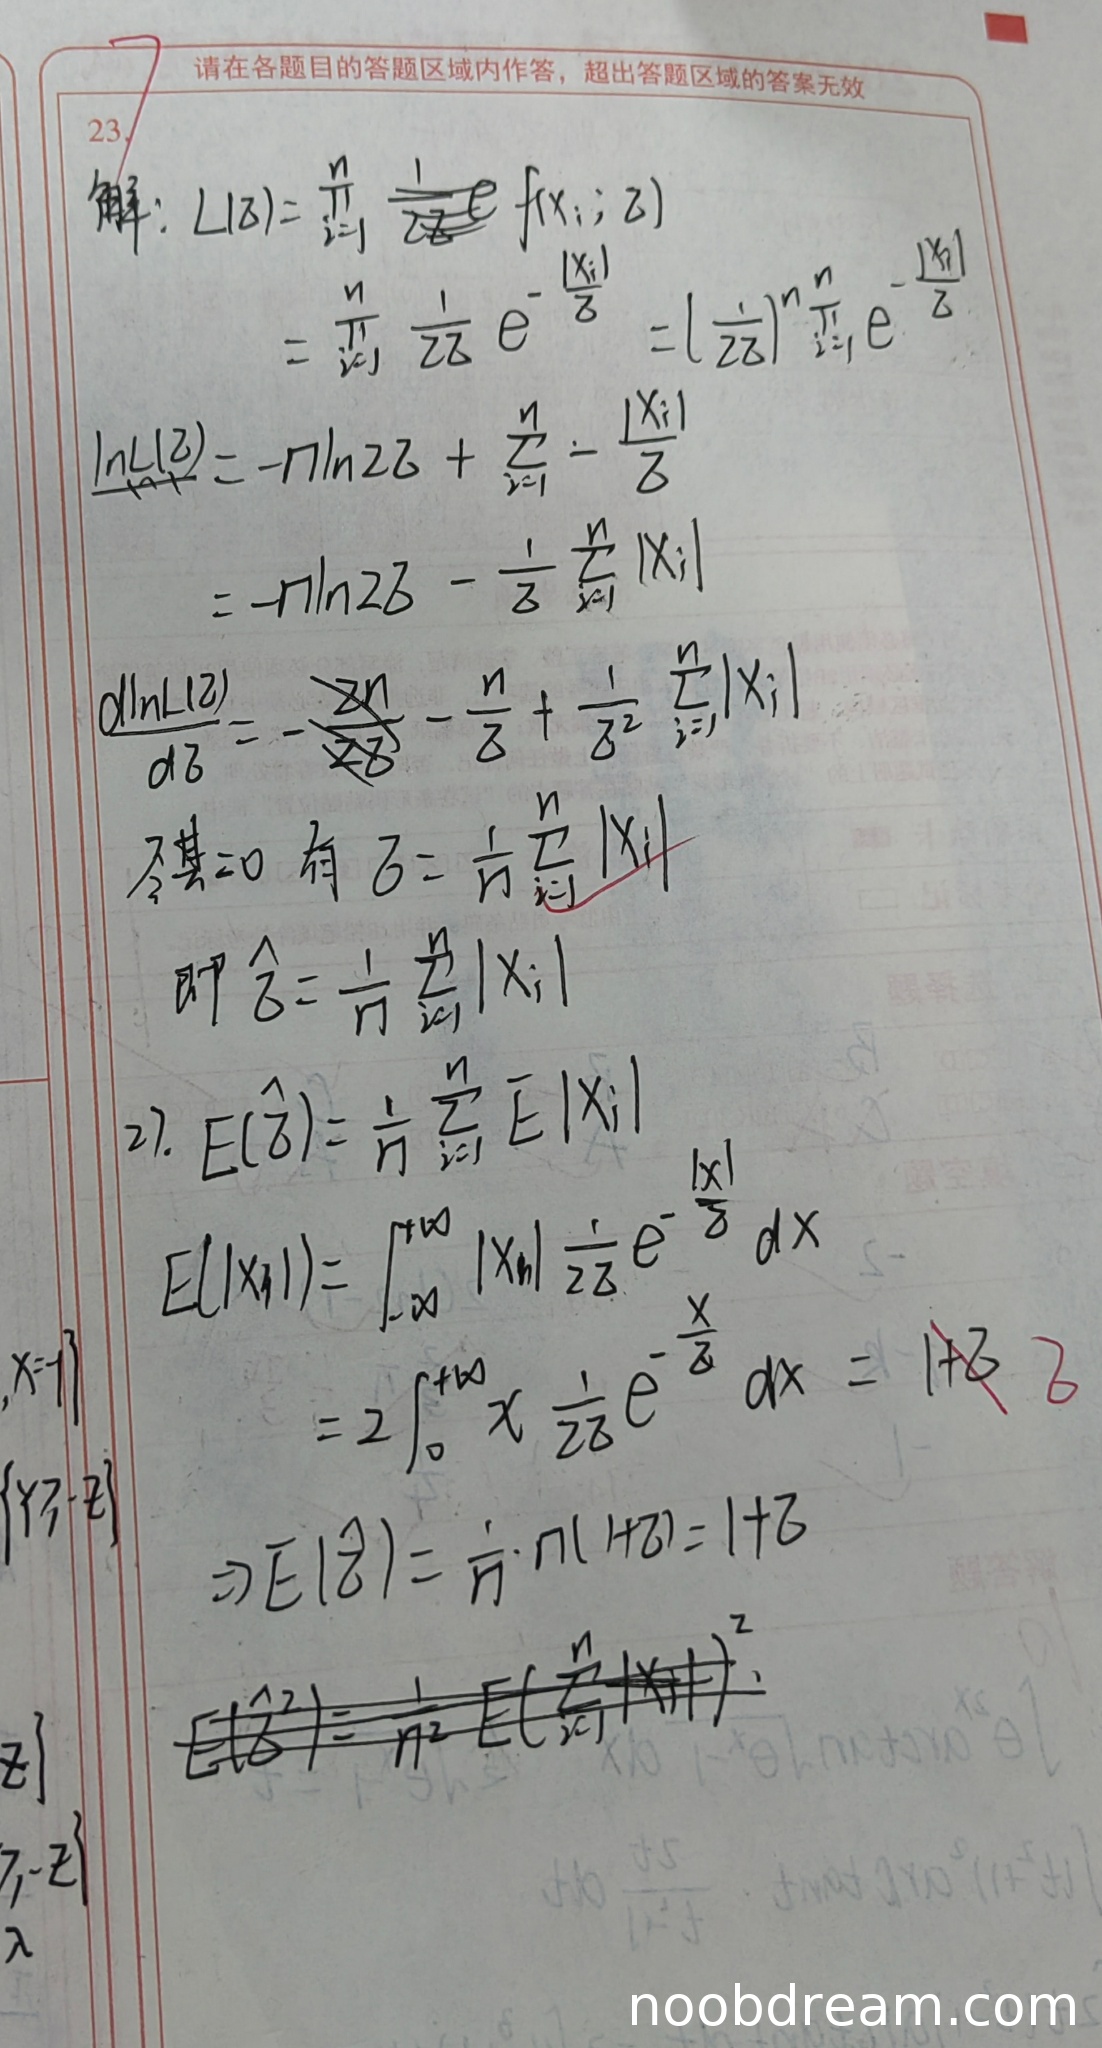 7
请在各题目的答题区域内作答，超出答题区域的答案无效
23.
解: L(σ) = ∏_{i=1}^{n} f(x_i; σ)
= ∏_{i=1}^{n} 1/(2σ) e^{-|x_i|/σ} = (1/(2σ))^n ∏_{i=1}^{n} e^{-|x_i|/σ}
lnL(σ) = -nln2σ + ∑_{i=1}^{n} - |x_i|/σ
= -nln2σ - 1/σ ∑_{i=1}^{n} |x_i|
dlnL(σ)/dσ = - 2n/2σ - n/σ + 1/σ² ∑_{i=1}^{n} |x_i|
令其=0 有 σ = 1/n ∑_{i=1}^{n} |x_i|
即 σ̂ = 1/n ∑_{i=1}^{n} |X_i|
2). E(σ̂) = 1/n ∑_{i=1}^{n} E|X_i|
E(|X_i|) = ∫_{-∞}^{+∞} |x| 1/(2σ) e^{-|x|/σ} dx
= 2∫_0^{+∞} x 1/(2σ) e^{-x/σ} dx = 1+σ σ
⇒ E(σ̂) = 1/n · n(1+σ) = 1+σ
E(σ̂²) = 1/n² E(∑_{i=1}^{n} |X_i|)².
, x=-1}
{Y≥-z}
z}
≥-z}
λ
noobdream.com